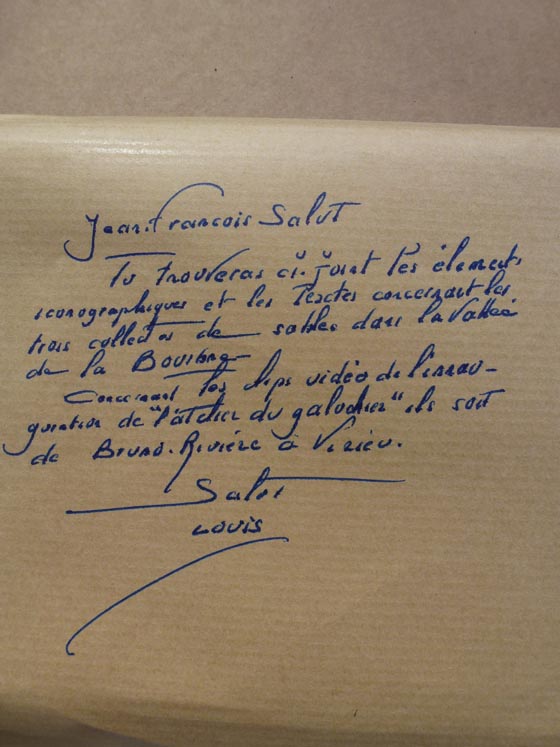 Jean.François Salut
Tu trouveras ci-joint les éléments
iconographiques et les Textes concernant les
trois collectes de sables dans la Vallée
de la Bourbre
Concernant les clips vidéo de l'innau-
guration de "l'atelier du galuchier" ils sont
de Bruno. Rivière à Virieu.
Salut
Louis